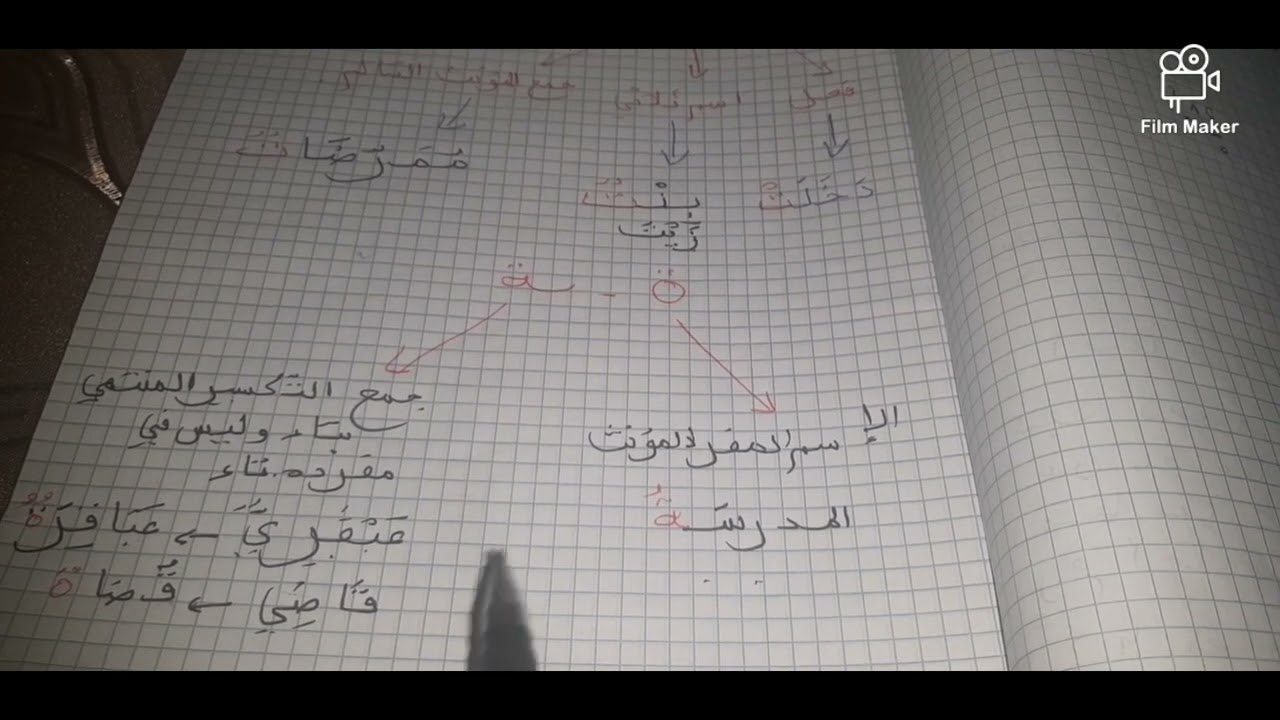 فعل اسم ثلاثي جمع المؤنث السالم
دَخَلَتْ بِنْتٌ مُمَرِّضَاتٌ
زَيْت
ة - ـة
الإسم المفرد المؤنث
المدرسَةُ
جمع التكسير المنتهي
بتاء وليس في
مفرده تاء
عَبْقَرِيٌّ ← عَبَاقِرَةٌ
قَاضِي ← قُضَاةٌ
Film Maker